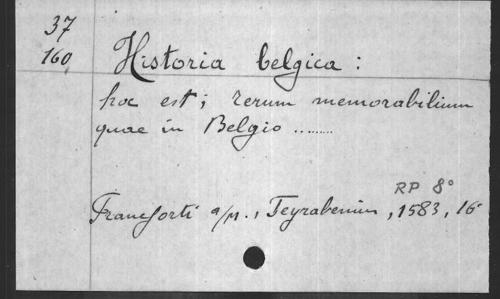 37
160
Historia belgica :
hoc est; rerum memorabilium
quae in Belgio ........
RP 8°
Francforti a/M., Feyrabenium, 1583, 16°